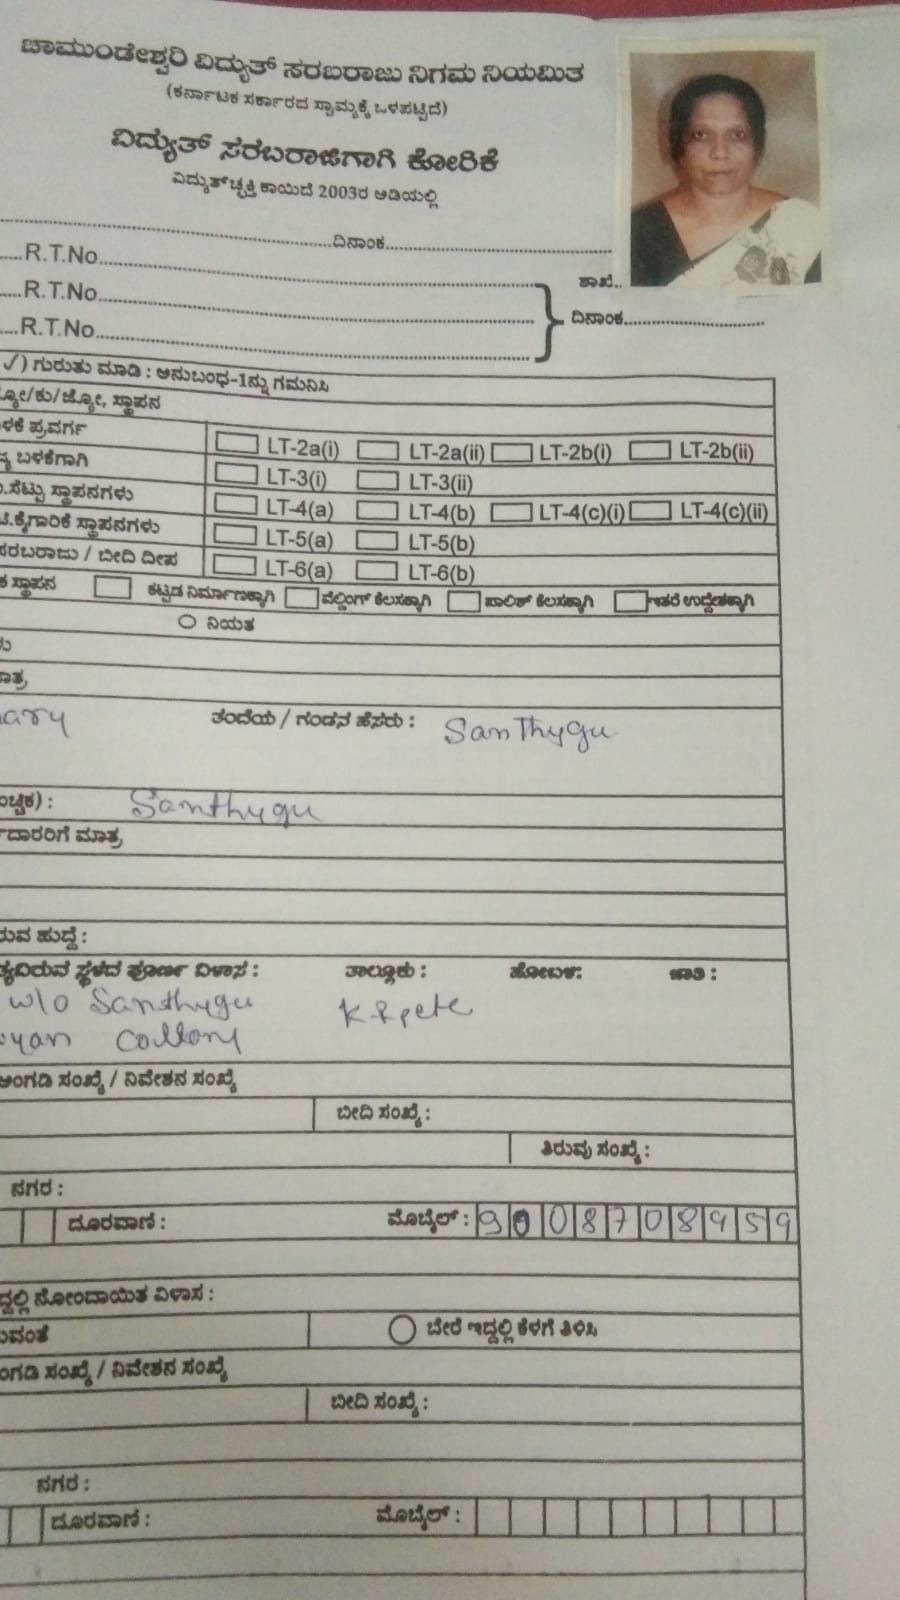 ಚಾಮುಂಡೇಶ್ವರಿ ವಿದ್ಯುತ್ ಸರಬರಾಜು ನಿಗಮ ನಿಯಮಿತ
(ಕರ್ನಾಟಕ ಸರ್ಕಾರದ ಸ್ವಾಮ್ಯಕ್ಕೆ ಒಳಪಟ್ಟಿದೆ)
ವಿದ್ಯುತ್ ಸರಬರಾಜಿಗಾಗಿ ಕೋರಿಕೆ
ವಿದ್ಯುತ್‌ಚ್ಛಕ್ತಿ ಕಾಯಿದೆ 2003ರ ಅಡಿಯಲ್ಲಿ
ದಿನಾಂಕ
R.T.No
ಶಾಖೆ
R.T.No
ದಿನಾಂಕ
R.T.No
✓) ಗುರುತು ಮಾಡಿ : ಅನುಬಂಧ-1ನ್ನು ಗಮನಿಸಿ
ಸ್ಥಾಪನ
ಳಕೆ ಪ್ರವರ್ಗ LT-2a(i) LT-2a(ii) LT-2b(i) LT-2b(ii)
ಬಳಕೆಗಾಗಿ LT-3(i) LT-3(ii)
ಸೆಟ್ಟು ಸ್ಥಾಪನಗಳು LT-4(a) LT-4(b) LT-4(c)(i) LT-4(c)(ii)
ಟಿ.ಕೈಗಾರಿಕೆ ಸ್ಥಾಪನಗಳು LT-5(a) LT-5(b)
ಸರಬರಾಜು / ಬೀದಿ ದೀಪ LT-6(a) LT-6(b)
ಕ ಸ್ಥಾಪನ ಕಟ್ಟಡ ನಿರ್ಮಾಣಕ್ಕಾಗಿ ವೆಲ್ಡಿಂಗ್ ಕೆಲಸಕ್ಕಾಗಿ ಪಾಲಿಶ್ ಕೆಲಸಕ್ಕಾಗಿ ಇತರೆ ಉದ್ದೇಶಕ್ಕಾಗಿ
ನಿಯತ
ಳು
ಮಾತ್ರ
ary ತಂದೆಯ / ಗಂಡನ ಹೆಸರು : Santhygu
ಂಚ್ಛಿಕ) : Santhygu
ದಾರರಿಗೆ ಮಾತ್ರ
ರುವ ಹುದ್ದೆ :
ತ್ಯವಿರುವ ಸ್ಥಳದ ಪೂರ್ಣ ವಿಳಾಸ : ತಾಲ್ಲೂಕು : ಹೋಬಳಿ: ಜಾತಿ :
w/o Santhygu K R pete
yan Collony
ಅಂಗಡಿ ಸಂಖ್ಯೆ / ನಿವೇಶನ ಸಂಖ್ಯೆ
ಬೀದಿ ಸಂಖ್ಯೆ :
ತಿರುವು ಸಂಖ್ಯೆ :
ನಗರ :
ದೂರವಾಣಿ : ಮೊಬೈಲ್ : 9008708959
ದ್ದಲ್ಲಿ ನೋಂದಾಯಿತ ವಿಳಾಸ :
ುವಂತೆ ಬೇರೆ ಇದ್ದಲ್ಲಿ ಕೆಳಗೆ ತಿಳಿಸಿ
ಂಗಡಿ ಸಂಖ್ಯೆ / ನಿವೇಶನ ಸಂಖ್ಯೆ
ಬೀದಿ ಸಂಖ್ಯೆ :
ನಗರ :
ದೂರವಾಣಿ : ಮೊಬೈಲ್ :